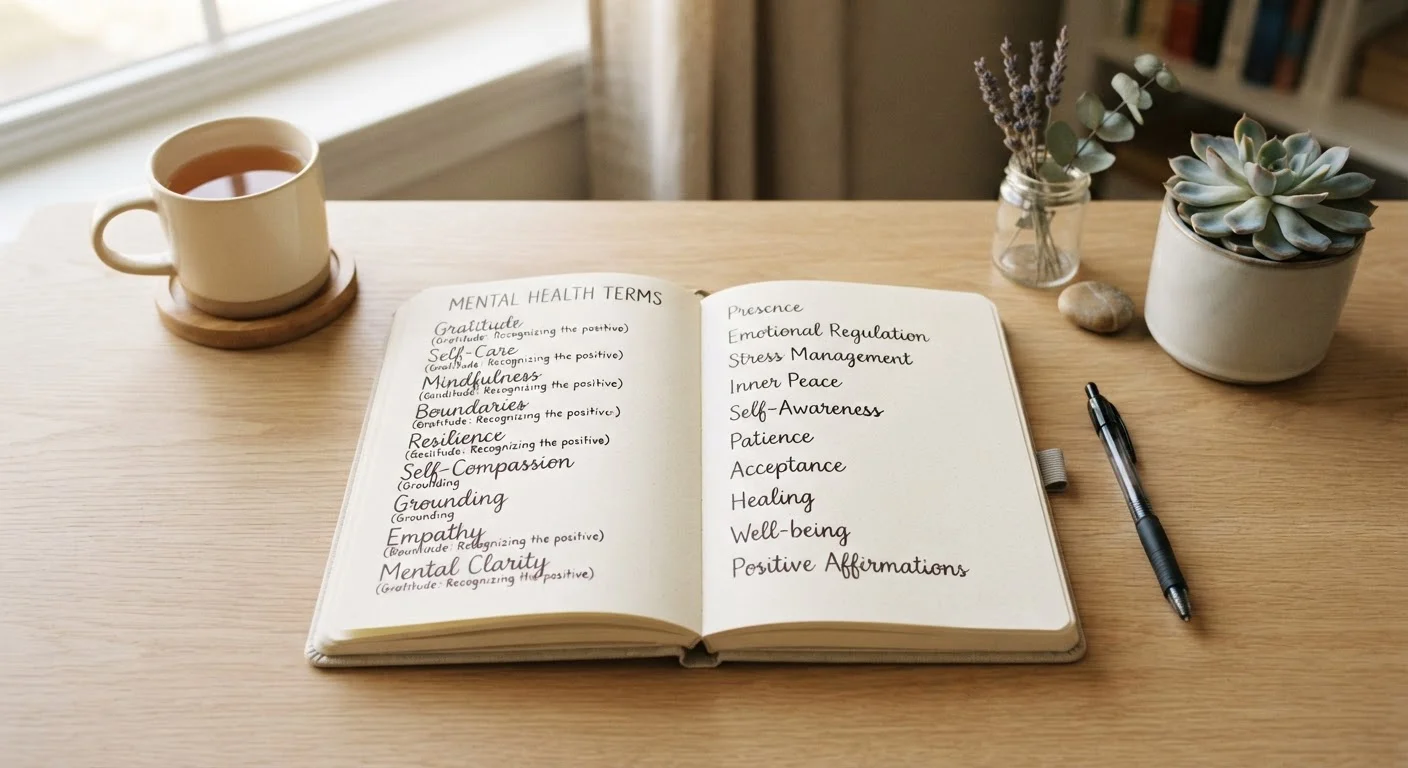 MENTAL HEALTH TERMS
Gratitude
(Gratitude: Recognizing the positive)
Self-Care
(Gratitude: Recognizing the positive)
Mindfulness
(Ganditude: Recognizing the positive)
Boundaries
(Gratitude: Recognizing the positive)
Resilience
(Recognizing the positive)
Self-Compassion
(Grounding
Grounding
(Grounding
Empathy
Recognizing the positive)
Mental Clarity
(Gratitude: Recognizing the positive)
Presence
Emotional Regulation
Stress Management
Inner Peace
Self-Awareness
Patience
Acceptance
Healing
Well-being
Positive Affirmations